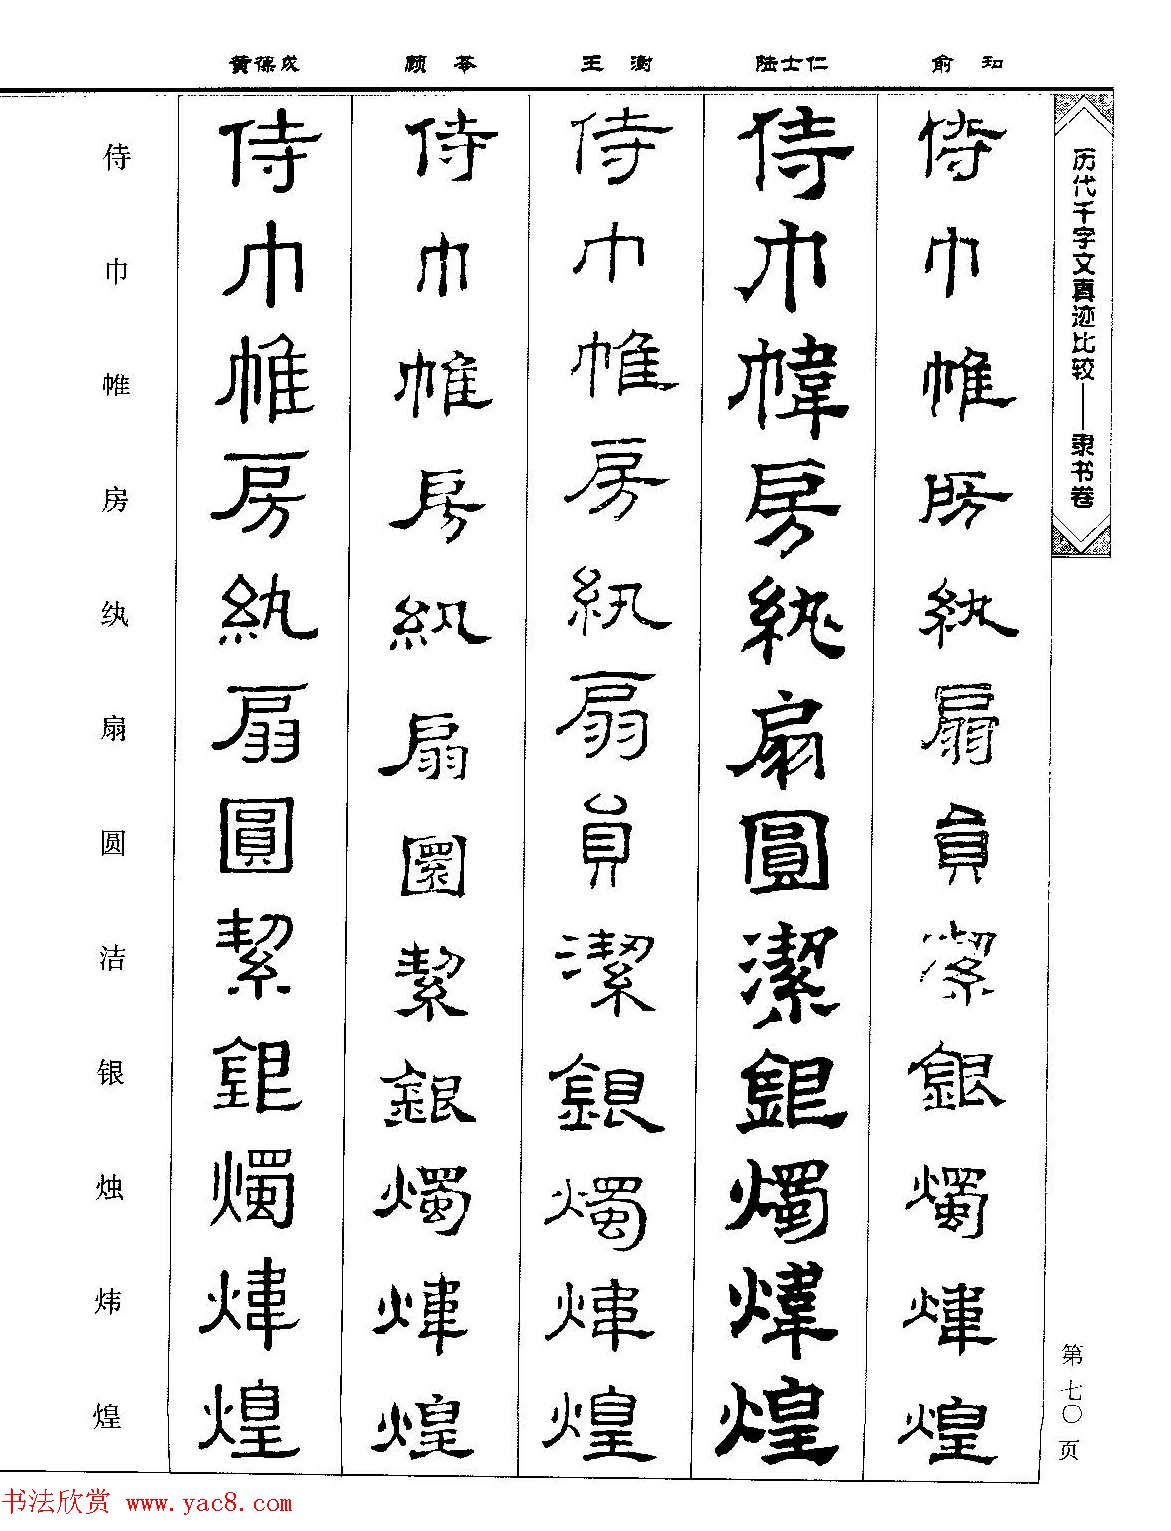 历代千字文真迹比较——隶书卷
第七〇页
俞和
侍巾帷房紈扇員潔銀燭煒煌
陆士仁
侍巾幃房紈扇圓潔銀燭煒煌
王澍
侍巾帷房紈扇員潔銀燭煒煌
顾苓
侍巾帷房紈扇圜絜銀燭煒煌
黄葆戉
侍巾帷房紈扇圓絜銀燭煒煌
侍巾帷房纨扇圆洁银烛炜煌
书法欣赏 www.yac8.com